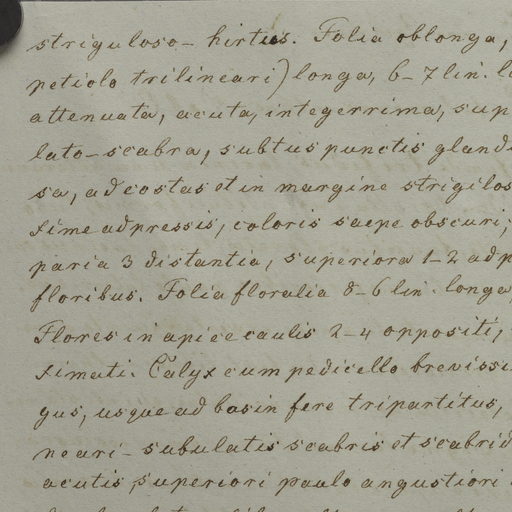 striguloso-hirtus. Folia oblonga,
petiolo trilineari) longa, 6-7 lin.
attenuata, acuta, integerrima, sup
lato-scabra, subtus punctis gland
sa, ad costas et in margine strigilos
sime adpressis, coloris saepe obscuri,
paria 3 distantia, superiora 1-2 adp
floribus. Folia floralia 8-6 lin. longa,
Flores in apice caulis 2-4 oppositi,
simati. Calyx cum pedicello brevissi
gus, usque ad basin fere tripartitus,
neari-subulatis scabris et scabrid
acutis, superiori paulo angustiori